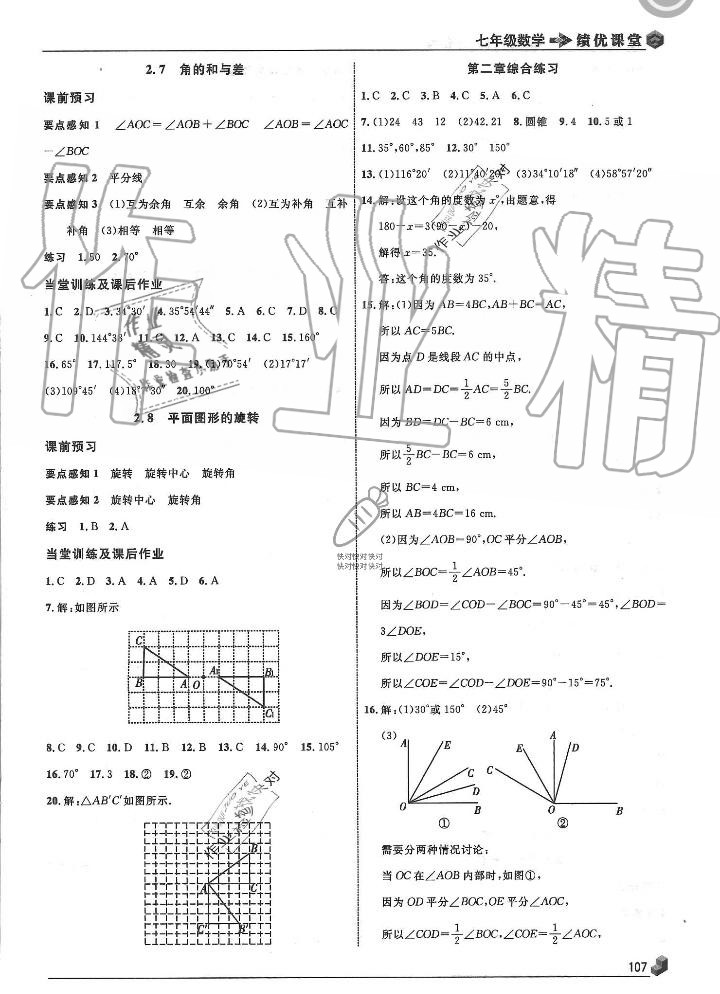 七年级数学 绩优课堂
2.7 角的和与差
课前预习
要点感知1 ∠AOC=∠AOB+∠BOC ∠AOB=∠AOC
-∠BOC
要点感知2 平分线
要点感知3 (1)互为余角 互余 余角 (2)互为补角 互补
补角 (3)相等 相等
练习 1.50 2.70°
当堂训练及课后作业
1.C 2.D 3.34°30′ 4.35°54′44″ 5.A 6.C 7.D 8.C
9.C 10.144°38′ 11.C 12.A 13.C 14.C 15.160°
16.65° 17.117.5° 18.30 19.(1)70°54′ (2)17°17′
(3)109°45′ (4)18° 30″ 20.100°
2.8 平面图形的旋转
课前预习
要点感知1 旋转 旋转中心 旋转角
要点感知2 旋转中心 旋转角
练习 1.B 2.A
当堂训练及课后作业
1.C 2.D 3.A 4.A 5.D 6.A
7.解:如图所示
C
B A O A₁ B₁
C₁
8.C 9.C 10.D 11.B 12.B 13.C 14.90° 15.105°
16.70° 17.3 18.② 19.②
20.解:△AB′C′如图所示.
B
A C
C′ B′
第二章综合练习
1.C 2.C 3.B 4.C 5.A 6.C
7.(1)24 43 12 (2)42.21 8.圆锥 9.4 10.5或1
11.35°,60°,85° 12.30° 150°
13.(1)116°20′ (2)117°40′ (3)34°10′18″ (4)58°57′20″
14.解:设这个角的度数为x°,由题意,得
180-x=3(90-x)-20,
解得x=35.
答:这个角的度数为35°.
15.解:(1)因为AB=4BC,AB+BC=AC,
所以AC=5BC.
因为点D是线段AC的中点,
所以AD=DC=1/2AC=5/2BC.
因为BD=DC-BC=6 cm,
所以5/2BC-BC=6 cm,
所以BC=4 cm,
所以AB=4BC=16 cm.
(2)因为∠AOB=90°,OC平分∠AOB,
所以∠BOC=1/2∠AOB=45°.
因为∠BOD=∠COD-∠BOC=90°-45°=45°,∠BOD=
3∠DOE,
所以∠DOE=15°,
所以∠COE=∠COD-∠DOE=90°-15°=75°.
16.解:(1)30°或150° (2)45°
(3)
A E C D O B
①
A E D C O B
②
需要分两种情况讨论:
当OC在∠AOB内部时,如图①,
因为OD平分∠BOC,OE平分∠AOC,
所以∠COD=1/2∠BOC,∠COE=1/2∠AOC,
107
作业精
快对快对快对
快对快对快对